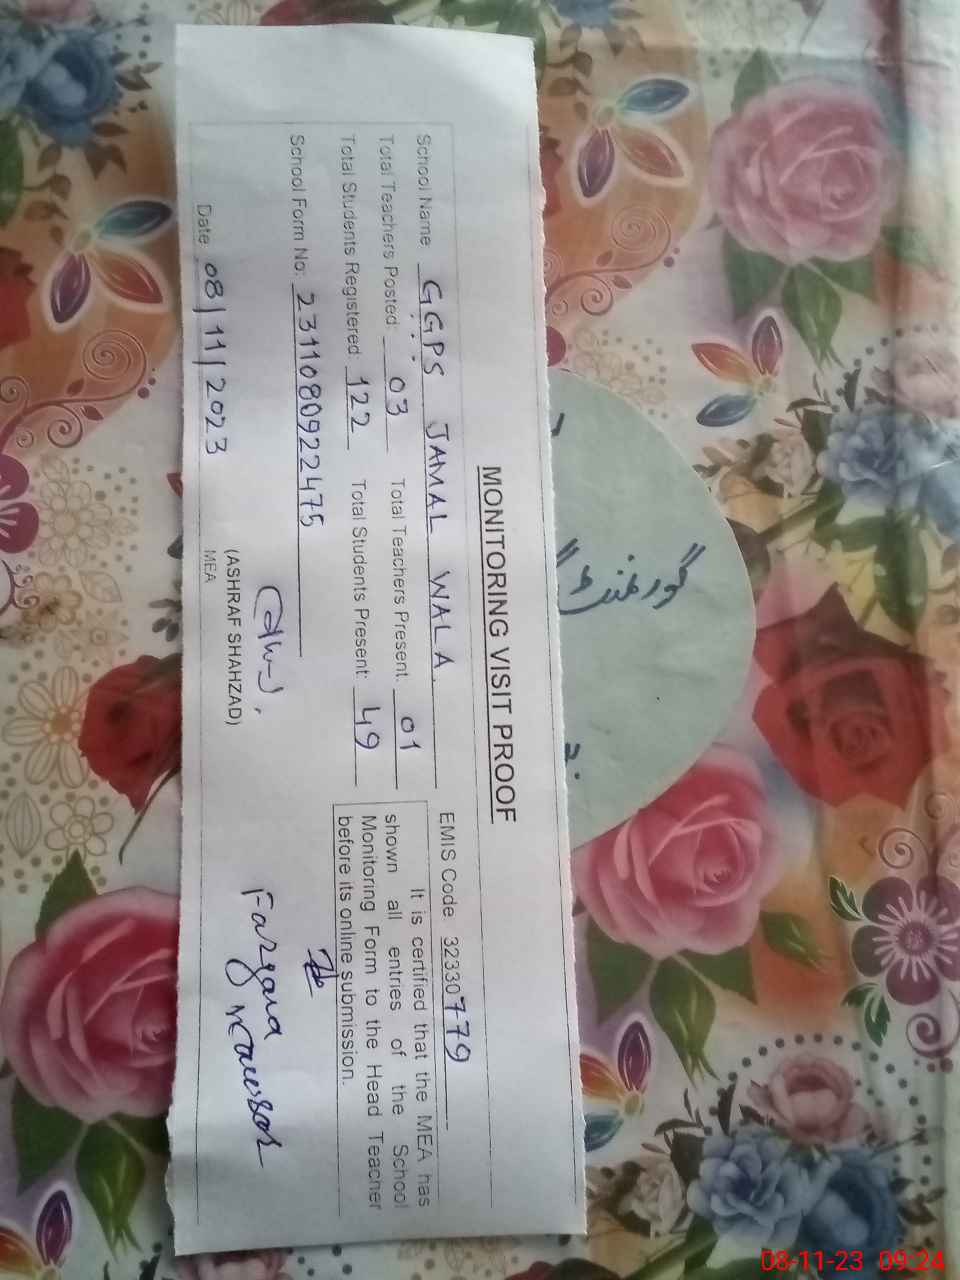 MONITORING VISIT PROOF
School Name GGPS JAMAL WALA EMIS Code 32330779
Total Teachers Posted: 03 Total Teachers Present: 01
Total Students Registered: 122 Total Students Present: 49
School Form No: 23110809922475
It is certified that the MEA has
shown all entries of the School
Monitoring Form to the Head Teacher
before its online submission.
(ASHRAF SHAHZAD)
MEA
Date 08/11/2023
Fargana
گورنمنٹ
08-11-23 09:24